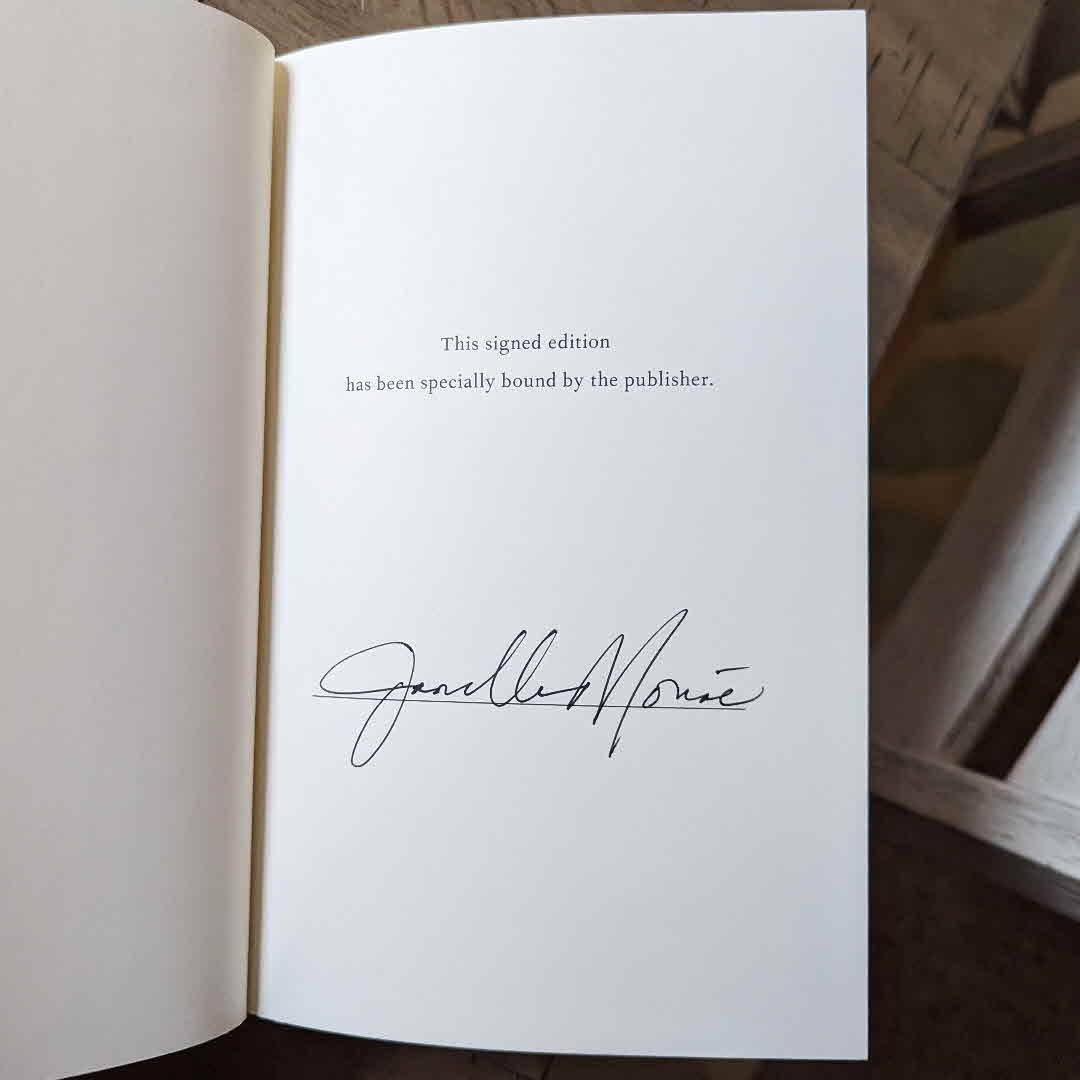 This signed edition
has been specially bound by the publisher.
Janelle Monáe